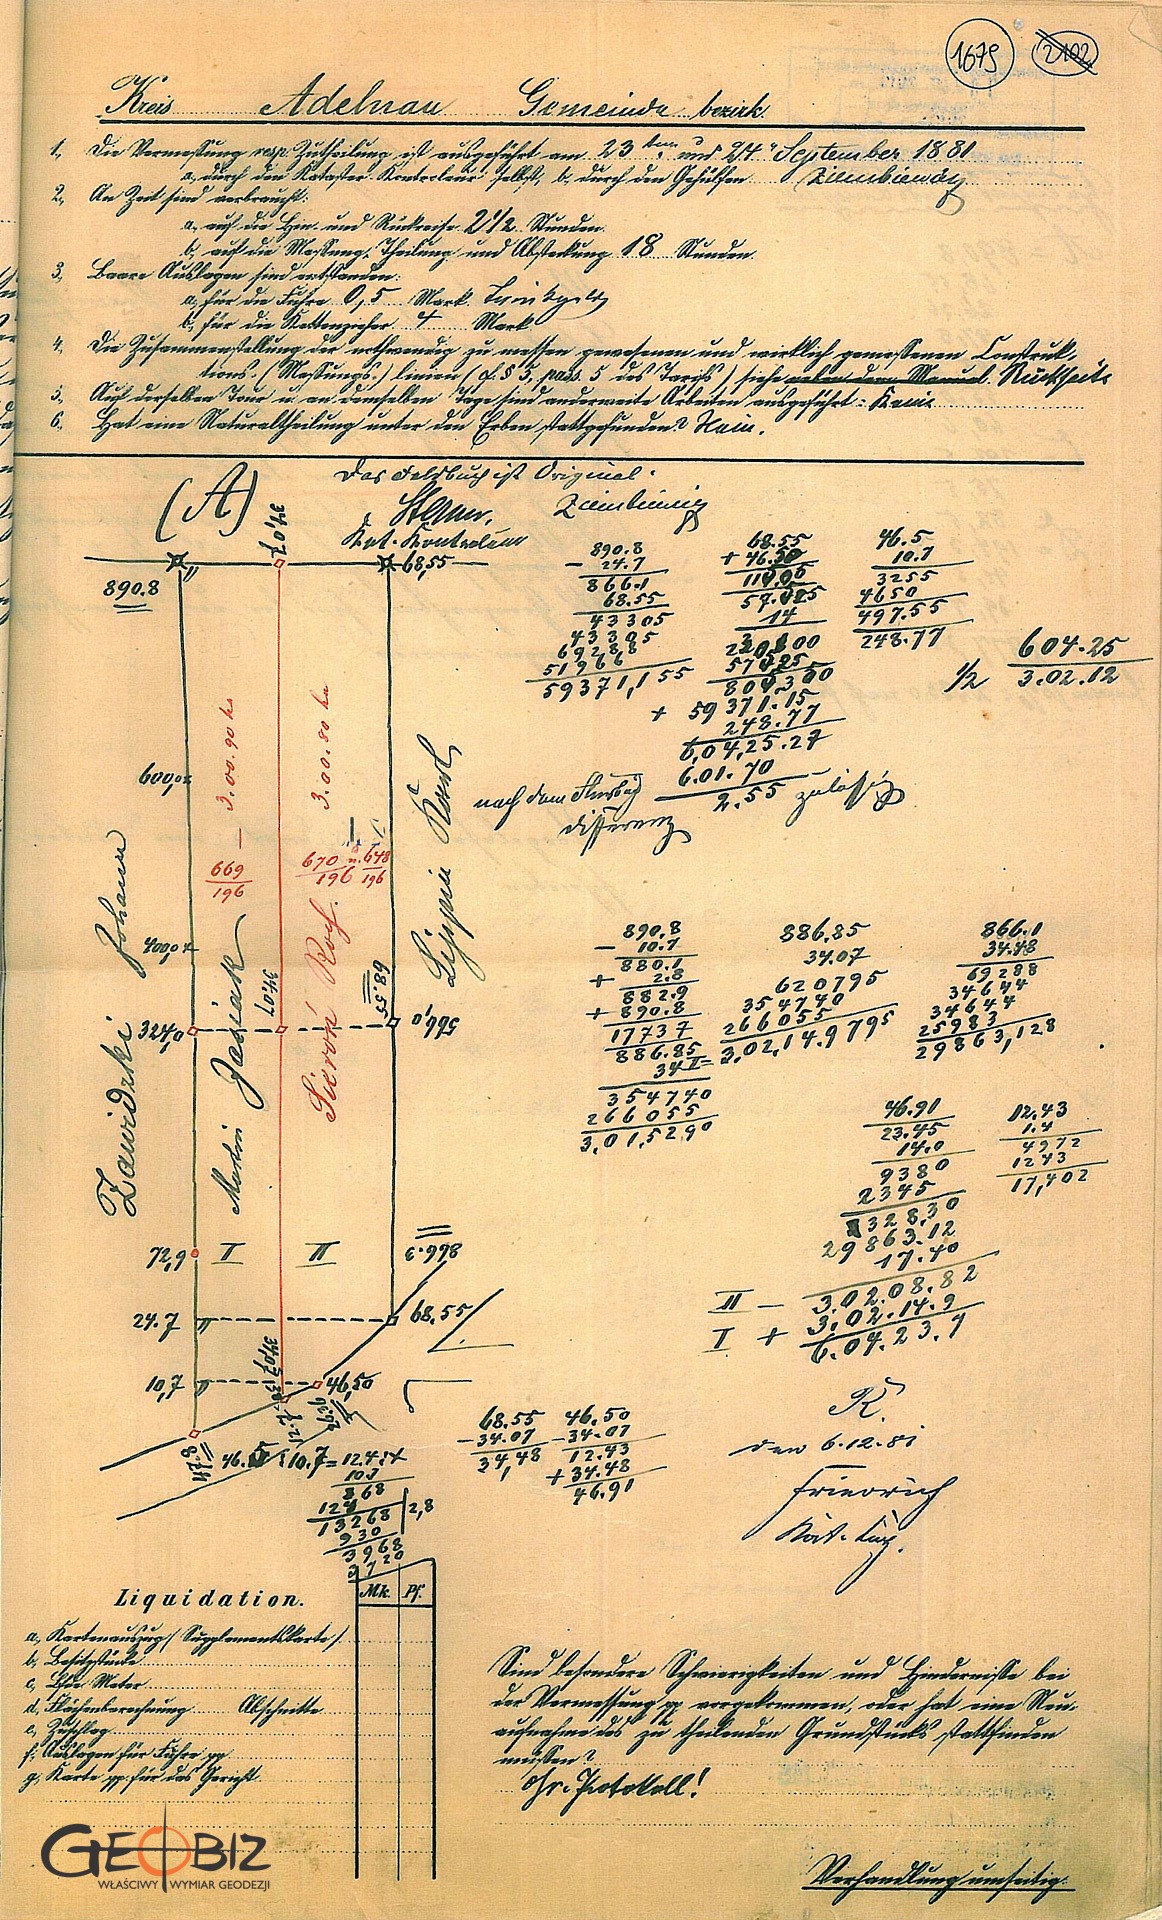 1679 2102
Kreis Adelnau Gemeinde bezirk.
1, Die Vermessung resp. Zutheilung ist ausgeführt am 23ten und 24. September 1881
a, durch den Kataster-Kontroleur selbst, b, durch den Gehülfen
2, An Zeit sind verbraucht:
a, auf die Hin- und Rückreise 2 1/2 Stunden.
b, auf die Messung, Theilung und Absteckung 18 Stunden.
3, Baare Auslagen sind entstanden:
a, für die Fuhre 0,5 Mark Trinkgeld
b, für die Kettenzieher 4 Mark
4, Die Zusammenstellung der nothwendig zu messen gewesenen und wirklich gemessenen Construk-
tions- (Messungs-) linien (cf. § 3, pass. 5 des Tarifs) siehe neben dem Manual. Rückseite
5, Auf derselben Tour u. an demselben Tage sind anderweite Arbeiten ausgeführt: Keine
6, Hat eine Naturaltheilung unter den Erben stattgefunden? Nein.
Das Feldbuch ist Original.
(A) 34,07
Kat. Kontroleur
68,55
890.8
890.8
- 24.7
866.1
68.55
43305
43305
69288
51966
59371,155
68.55
+ 46.50
14
+ 59371.15
248.77
6,04,25.27
6.01.70
2.55 zulässig
nach dem Flurbuch
Differenz
46.5
10.7
3255
4650
497.55
248.77
604.25
1/2 3.02.12
600,0
3.00.90 ha
3.00.80 ha
669/196
670/196 u. 648/196
400,0
Zawidzki Johann
Jasiak
Lippia Karl
34,07
68.55
324,0
564,0
72,9 I II 866.3
24.7 68.55
10,7 46,50
34,07
890.8
- 10.7
880.1
+ 2.8
882.9
+ 890.8
17737
886.85
34
354740
266055
3,01,5290
886,85
34.07
620795
354740
266055
3,02,14.9795
866.1
34.48
69288
34644
34644
25983
29863,128
46.91
23.45
14.0
9380
2345
328.30
29863.12
17.40
II - 3.02.08.82
I + 3.02.14.9
6.04.23.7
12.43
1.4
4972
1243
17,402
46.5 : 10,7 = 12.4 : x
10.7
868
124
13268 | 2,8
930
3968
3720
68.55
-34.07
34,48
46.50
-34.07
12.43
+34.48
46.91
R.
den 6.12.81
Friedrich
Liquidation. Mk. Pf.
a, Kartenauszug (Supplementskarte)
b, Besitzstücke
c, Lfde Meter
d, Flächenberechnung Abschnitte
e, Zuschlag
f, Auslagen für Fuhre pp
g, Karte pp. für das Gericht
Sind besondere Schwierigkeiten und Hindernisse bei
der Vermessung pp vorgekommen, oder hat eine Neu-
aufnahme des zu theilenden Grundstücks stattfinden
müssen?
Protokoll!
Verhandlung umseitig.
GEOBIZ
WŁAŚCIWY WYMIAR GEODEZJI